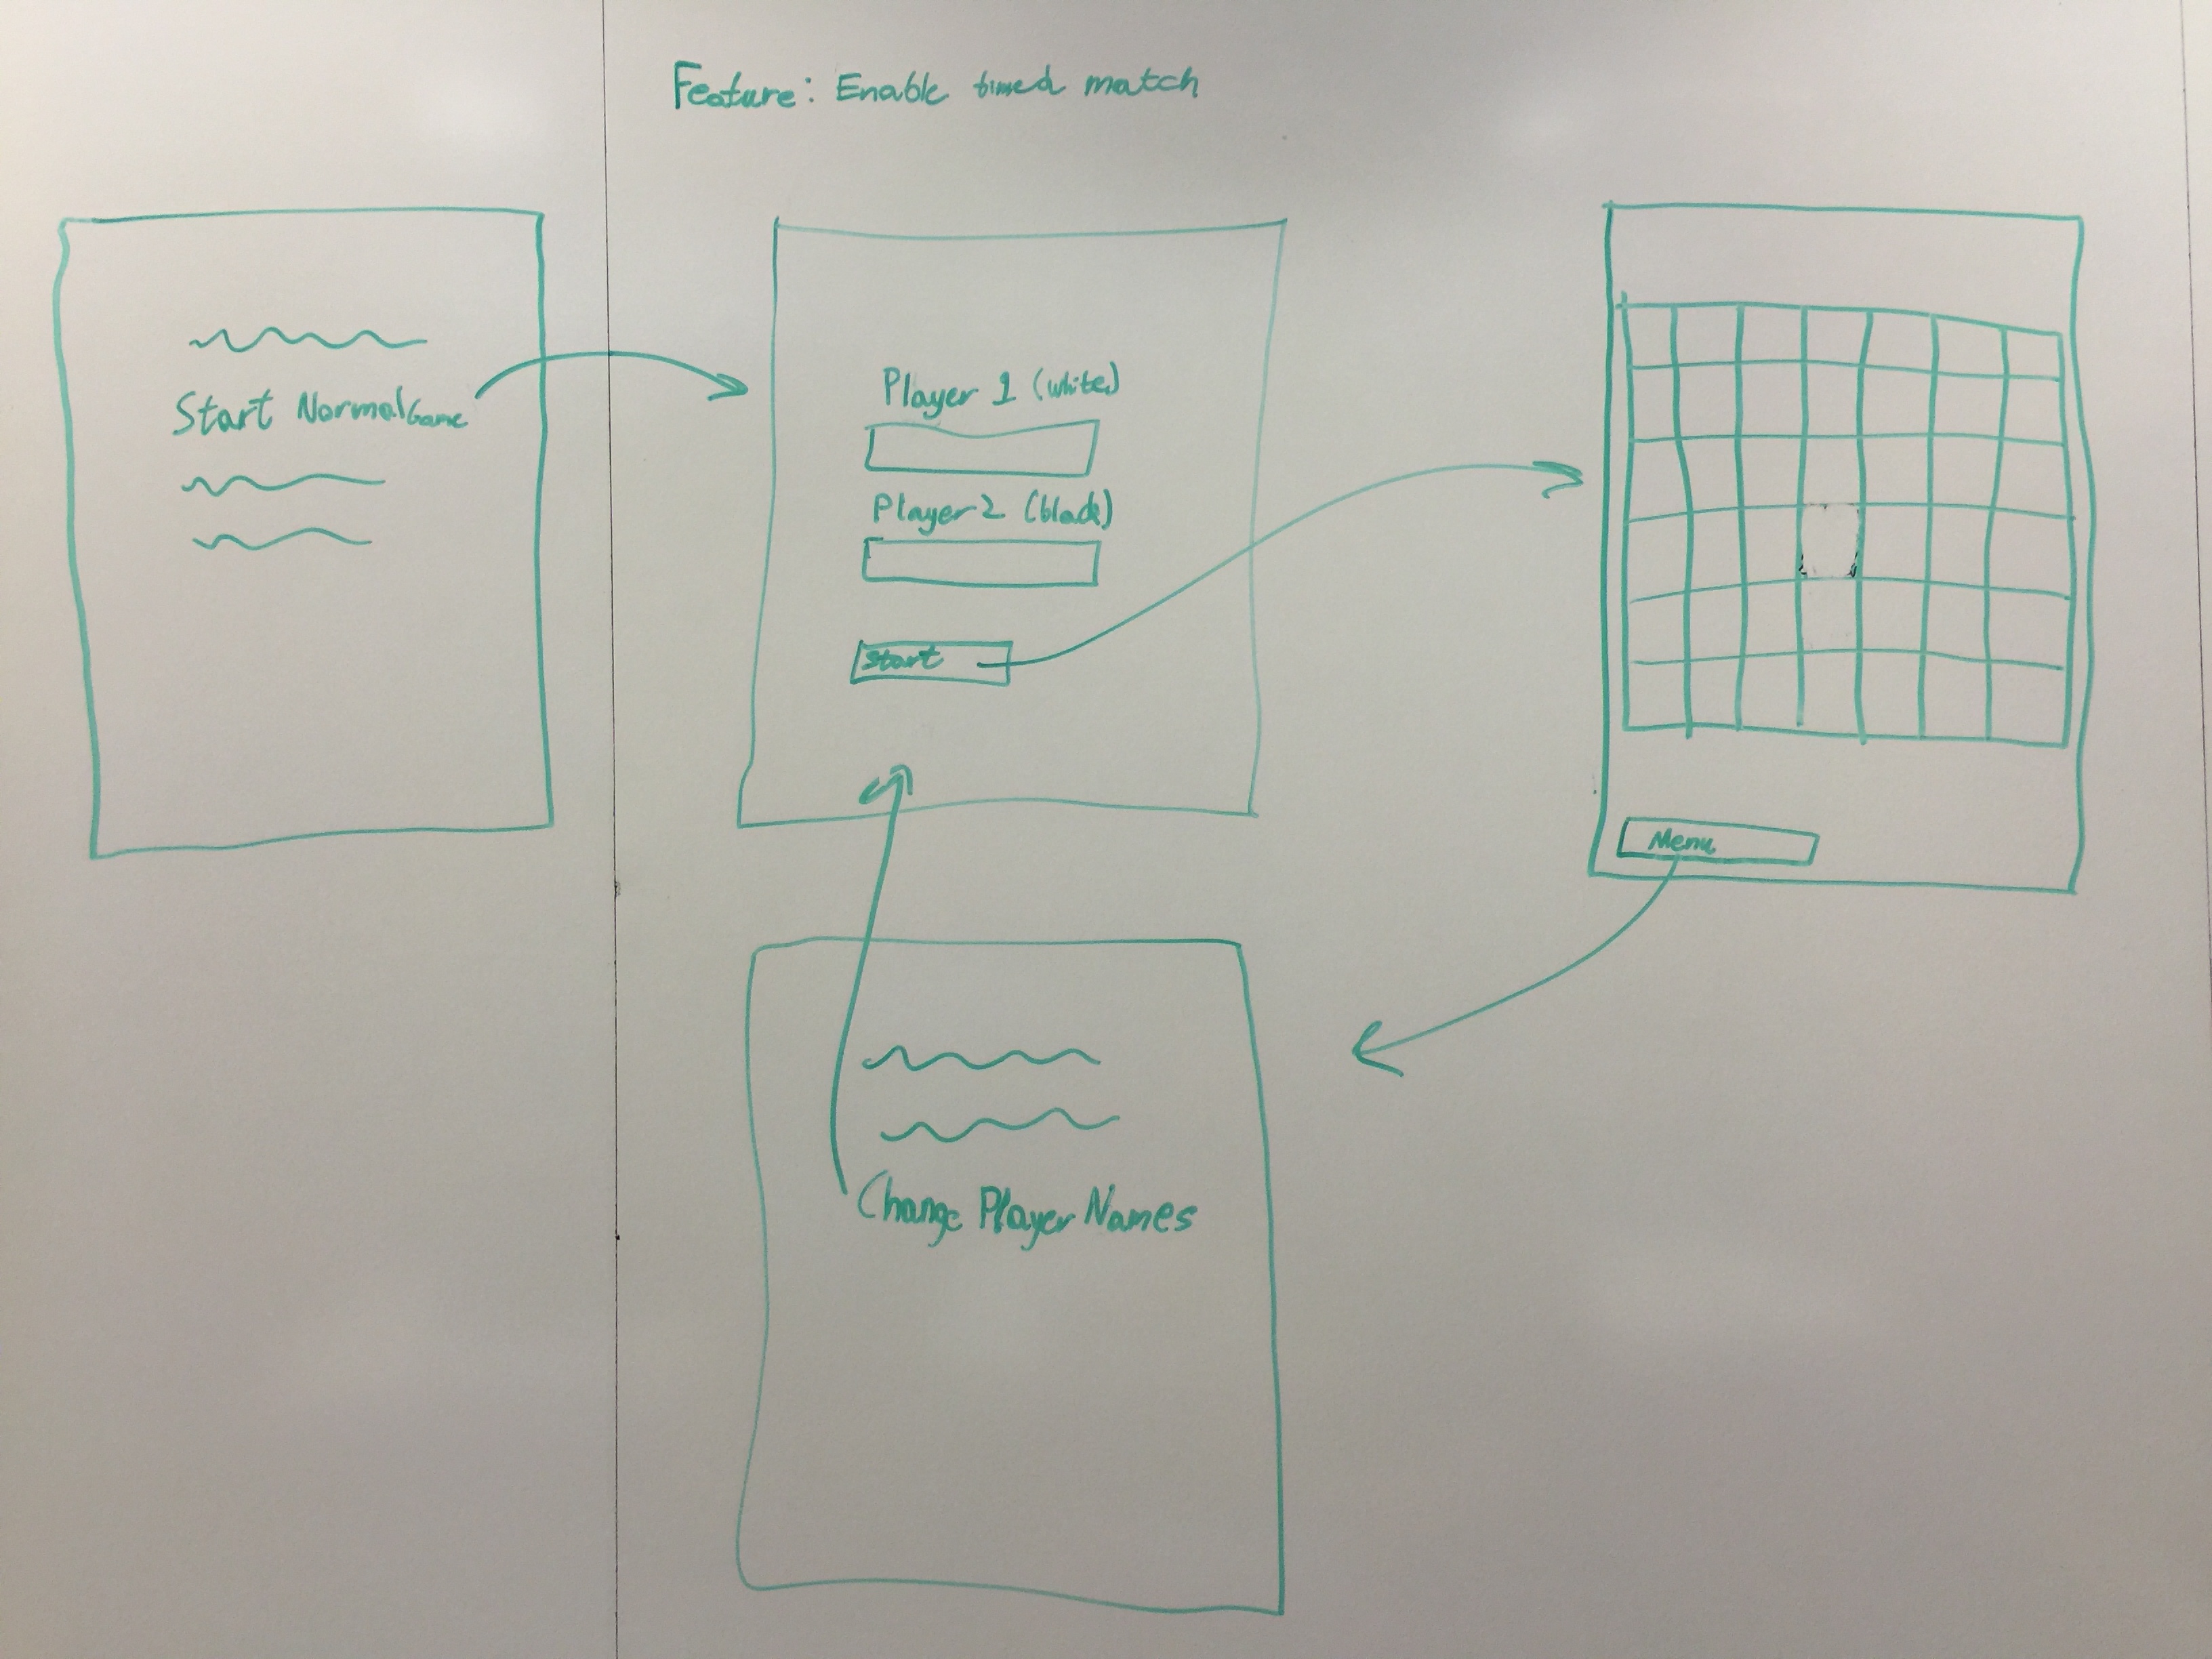 Feature: Enable timed match
Start Normal Game
Player 1 (white)
Player 2 (black)
Start
Menu
Change Player Names